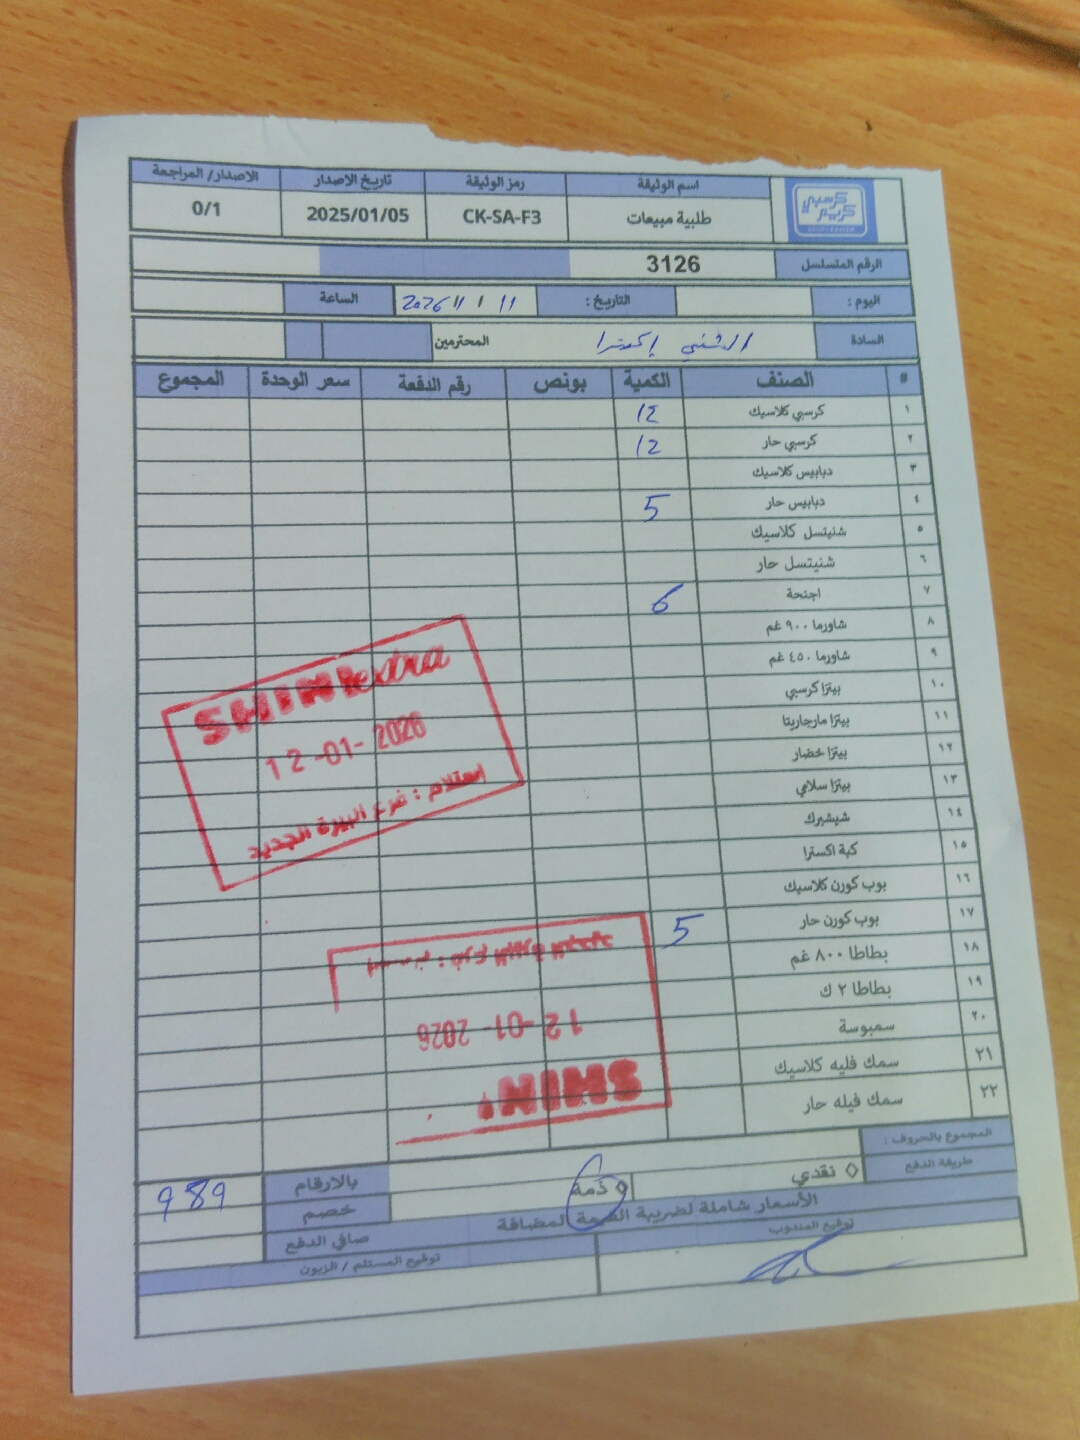 كرسبي كريم
اسم الوثيقة رمز الوثيقة تاريخ الاصدار الاصدار/ المراجعة
طلبية مبيعات CK-SA-F3 2025/01/05 0/1
الرقم المتسلسل 3126
اليوم : التاريخ : 11 / 1 / 2026 الساعة
السادة الشني إكسترا المحترمين
# الصنف الكمية بونص رقم الدفعة سعر الوحدة المجموع
١ كرسبي كلاسيك 12
٢ كرسبي حار 12
٣ دبابيس كلاسيك
٤ دبابيس حار 5
٥ شنيتسل كلاسيك
٦ شنيتسل حار
٧ اجنحة 6
٨ شاورما ٩٠٠ غم
٩ شاورما ٤٥٠ غم
١٠ بيتزا كرسبي
١١ بيتزا مارجاريتا
١٢ بيتزا خضار
١٣ بيتزا سلامي
١٤ شيشبرك
١٥ كبة اكسترا
١٦ بوب كورن كلاسيك
١٧ بوب كورن حار 5
١٨ بطاطا ٨٠٠ غم
١٩ بطاطا ٢ ك
٢٠ سمبوسة
٢١ سمك فليه كلاسيك
٢٢ سمك فيله حار
SHINI extra
12-01-2026
إستلام : فرع البيرة الجديد
SHINI
12-01-2026
فرع البيرة الجديد
المجموع بالحروف :
طريقة الدفع ◊ نقدي ◊ ذمة بالارقام 989
خصم
الأسعار شاملة لضريبة القيمة المضافة صافي الدفع
توقيع المندوب توقيع المستلم / الزبون